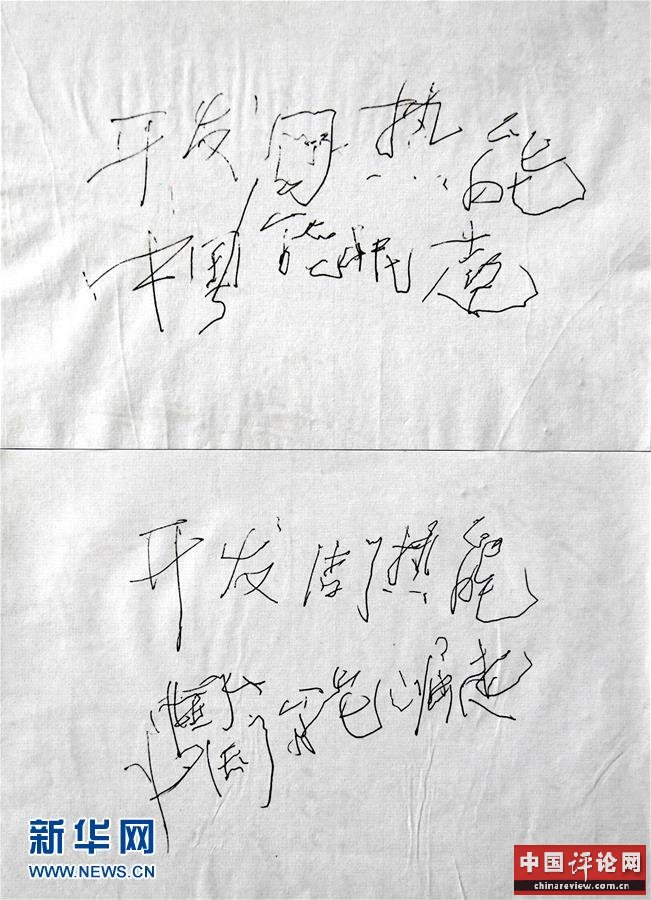 开发固热能
中国能崛起
开发固热能
中国能崛起
新华网
WWW.NEWS.CN
中国评论网
chinareview.com